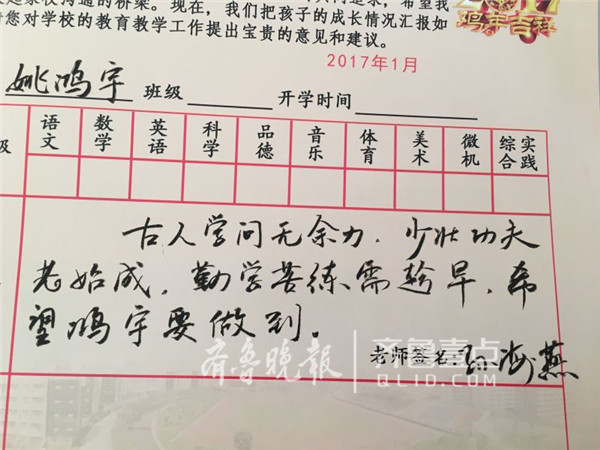 起家校沟通的桥梁。现在，我们把孩子的成长情况汇报如
请您对学校的教育教学工作提出宝贵的意见和建议。
鸡年吉祥
2017年1月
姚鸿宇 班级 开学时间
级 语文 数学 英语 科学 品德 音乐 体育 美术 微机 综合实践
古人学问无余力，少壮功夫
老始成，勤学苦练需趁早，希
望鸿宇要做到。
老师签名 孙海燕
齐鲁晚报 齐鲁壹点
QLID.COM